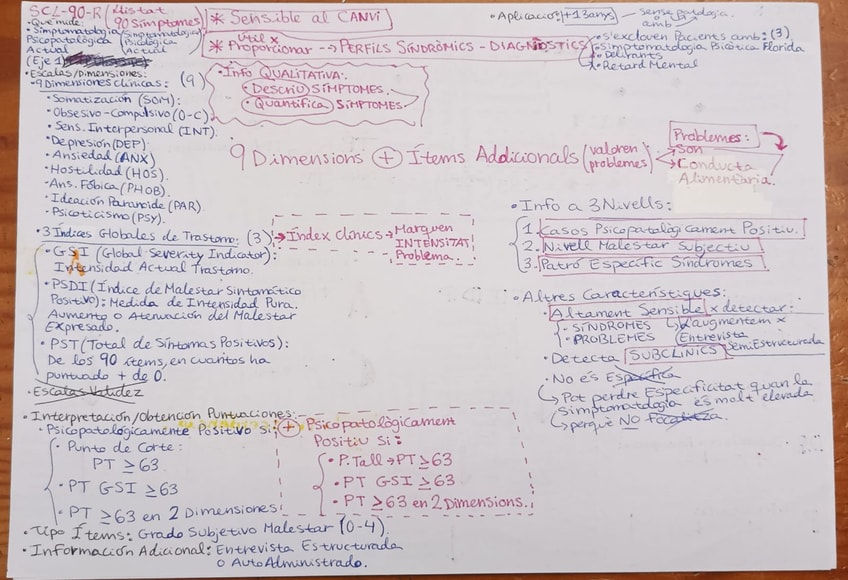 SCL-90-R (Llistat 90 Símptomes)
• Qué mide:
• Simptomatologia Psicopatológica Actual (Simptomatologia Psicológica Actual)
(Eje 1)
• Escalas/Dimensiones: (9)
• 9 Dimensiones clínicas:
• Somatización (SOM):
• Obsesivo-Compulsivo (O-C).
• Sens. Interpersonal (INT).
• Depresión (DEP)
• Ansiedad (ANX)
• Hostilidad (HOS).
• Ans. Fóbica (PHOB)
• Ideación Paranoide (PAR)
• Psicoticismo (PSY).
• 3 Índices Globales de Trastorno: (3)
• GSI (Global Severity Indicator):
Intensidad Actual Trastorno.
• PSDI (Índice de Malestar Sintomático
Positivo): Medida de Intensidad Pura.
Aumento o Atenuación del Malestar
Expresado.
• PST (Total de Síntomas Positivos):
De los 90 ítems, en cuantos ha
puntuado + de 0.
• Escalas Validez
• Interpretación/Obtención Puntuaciones:
• Psicopatológicamente Positivo Si:
• Punto de Corte:
PT ≥ 63.
• PT GSI ≥ 63
• PT ≥ 63 en 2 Dimensiones.
• Tipo Ítems: Grado Subjetivo Malestar (0-4)
• Información Adicional: Entrevista Estructurada
o AutoAdministrado.
* Sensible al CANVI
* útil x Proporcionar --> PERFILS SÍNDRÒMICS - DIAGNÒSTICS
• Info QUALITATIVA:
• Descriu SÍMPTOMES
• Quantifica SÍMPTOMES
9 Dimensions + Ítems Addicionals (valoren problemes)
Problemes:
→ Son
→ Conducta
Alimentària.
→ Índex clínics → Marquen
INTENSITAT
Problema.
+ Psicopatològicament
Positiu Si:
• P. Tall → PT ≥ 63
• PT GSI ≥ 63
• PT ≥ 63 en 2 Dimensions.
• Aplicació: +13 anys → sense patologia
o
amb
• S'exclouen Pacients amb: (3)
• Simptomatologia Psicótica Florida
• Delirants
• Retard Mental
• Info a 3 Nivells:
1. Casos Psicopatològicament Positiu.
2. Nivell Malestar Subjectiu
3. Patró Específic Síndromes
• Altres Característiques:
• Altament Sensible x detectar:
• SÍNDROMES
• PROBLEMES
↳ L'augmentem x
Entrevista
SemiEstructurada
• Detecta SUBCLÍNICS
• No és Específica
↳ Pot perdre Especificitat quan la
simptomatologia és molt elevada
↳ perquè NO Focalitza.